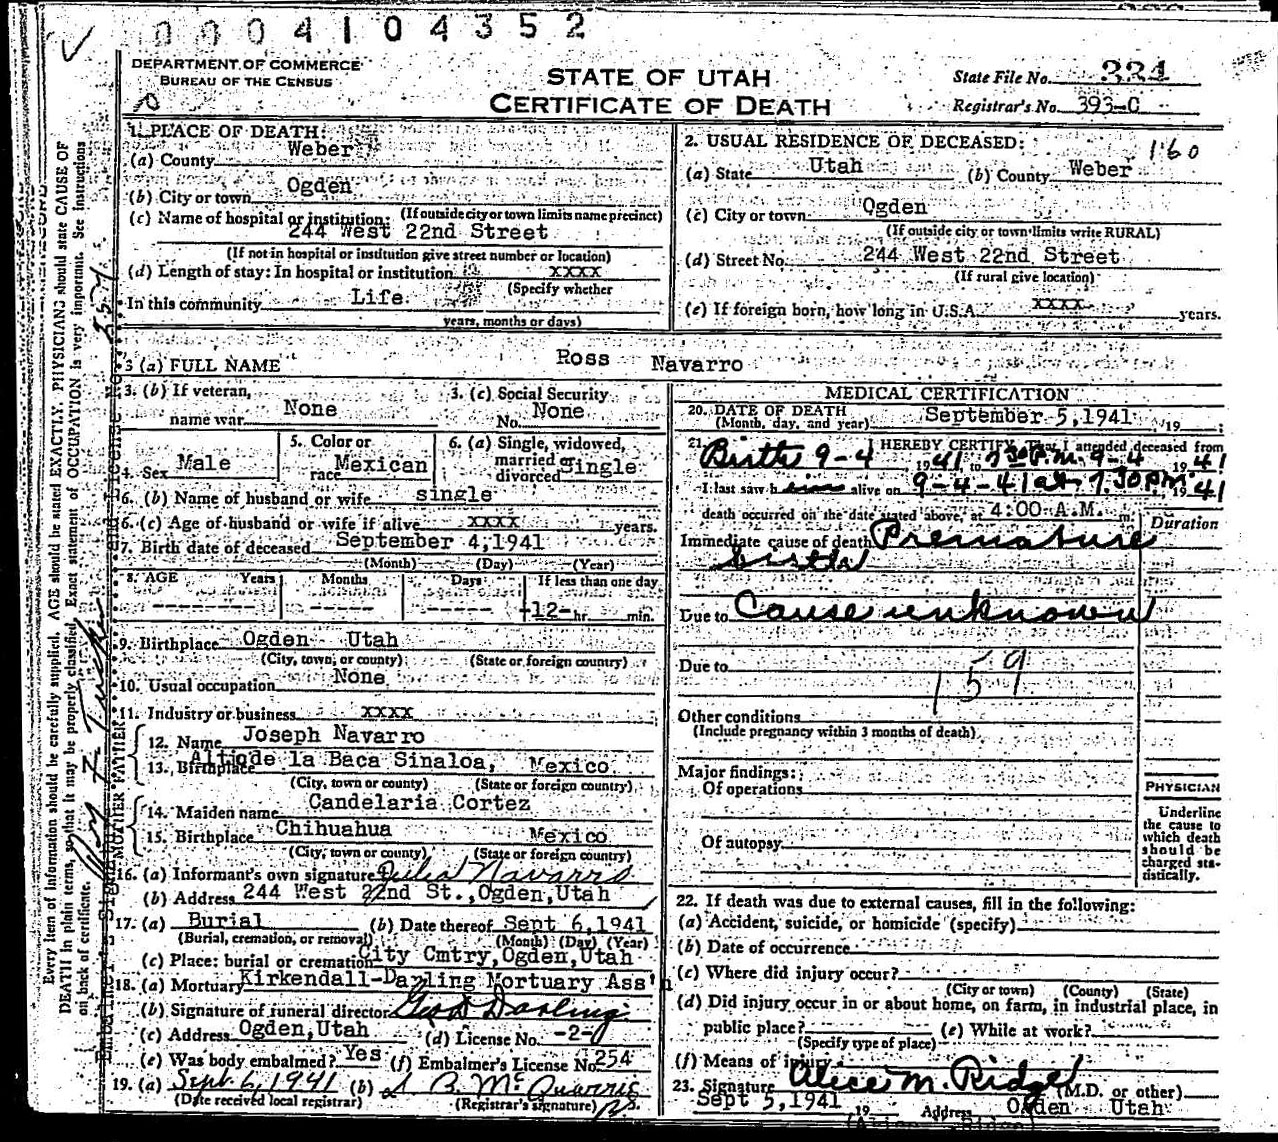 0004104352
DEPARTMENT OF COMMERCE
BUREAU OF THE CENSUS
STATE OF UTAH
CERTIFICATE OF DEATH
State File No. 334
Registrar's No. 393-C
1. PLACE OF DEATH:
(a) County Weber
(b) City or town Ogden
(If outside city or town limits name precinct)
(c) Name of hospital or institution:
244 West 22nd Street
(If not in hospital or institution give street number or location)
(d) Length of stay: In hospital or institution xxxx
(Specify whether
In this community Life
years, months or days)
2. USUAL RESIDENCE OF DECEASED: 160
(a) State Utah (b) County Weber
(c) City or town Ogden
(If outside city or town limits write RURAL)
(d) Street No. 244 West 22nd Street
(If rural give location)
(e) If foreign born, how long in U.S.A. xxxx years.
3 (a) FULL NAME Ross Navarro
3. (b) If veteran, name war None
3. (c) Social Security No. None
4. Sex Male
5. Color or race Mexican
6. (a) Single, widowed, married or divorced Single
6. (b) Name of husband or wife single
6. (c) Age of husband or wife if alive xxxx years.
7. Birth date of deceased September 4, 1941
(Month) (Day) (Year)
8. AGE Years Months Days If less than one day
------ ----- ----- -12- hr. min.
9. Birthplace Ogden Utah
(City, town, or county) (State or foreign country)
10. Usual occupation None
11. Industry or business xxxx
FATHER
12. Name Joseph Navarro
13. Birthplace Altiode la Baca Sinaloa, Mexico
(City, town or county) (State or foreign country)
MOTHER
14. Maiden name Candelaria Cortez
15. Birthplace Chihuahua Mexico
(City, town or county) (State or foreign country)
16. (a) Informant's own signature Julia Navarro
(b) Address 244 West 22nd St., Ogden, Utah
17. (a) Burial (b) Date thereof Sept 6, 1941
(Burial, cremation, or removal) (Month) (Day) (Year)
(c) Place: burial or cremation City Cmtry, Ogden, Utah
18. (a) Mortuary Kirkendall-Darling Mortuary Ass'n
(b) Signature of funeral director Geo D Darling
(c) Address Ogden, Utah (d) License No. -2-
(e) Was body embalmed? Yes (f) Embalmer's License No. 254
19. (a) Sept. 6, 1941 (b) McQuarrie
(Date received local registrar) (Registrar's signature)
MEDICAL CERTIFICATION
20. DATE OF DEATH September 5, 1941 19 ;
(Month, day, and year)
21. I HEREBY CERTIFY, That I attended deceased from
Birth 9-4 1941 to 7:30 P.M. 9-4 1941
I last saw him alive on 9-4-41 at 7:30 pm 1941
death occurred on the date stated above, at 4:00 A.M. m.
Duration
Immediate cause of death Premature
birth
Due to Cause unknown
Due to
159
Other conditions
(Include pregnancy within 3 months of death)
Major findings:
Of operations
Of autopsy
PHYSICIAN
Underline
the cause to
which death
should be
charged sta-
tistically.
22. If death was due to external causes, fill in the following:
(a) Accident, suicide, or homicide (specify)
(b) Date of occurrence
(c) Where did injury occur?
(City or town) (County) (State)
(d) Did injury occur in or about home, on farm, in industrial place, in
public place? (e) While at work?
(Specify type of place)
(f) Means of injury
23. Signature Alice M. Ridge (M.D. or other)
Sept 5, 1941 19 Address Ogden Utah
Every item of information should be carefully supplied. AGE should be stated EXACTLY. PHYSICIANS should state CAUSE OF
DEATH in plain terms, so that it may be properly classified. Exact statement of OCCUPATION is very important. See instructions
on back of certificate.